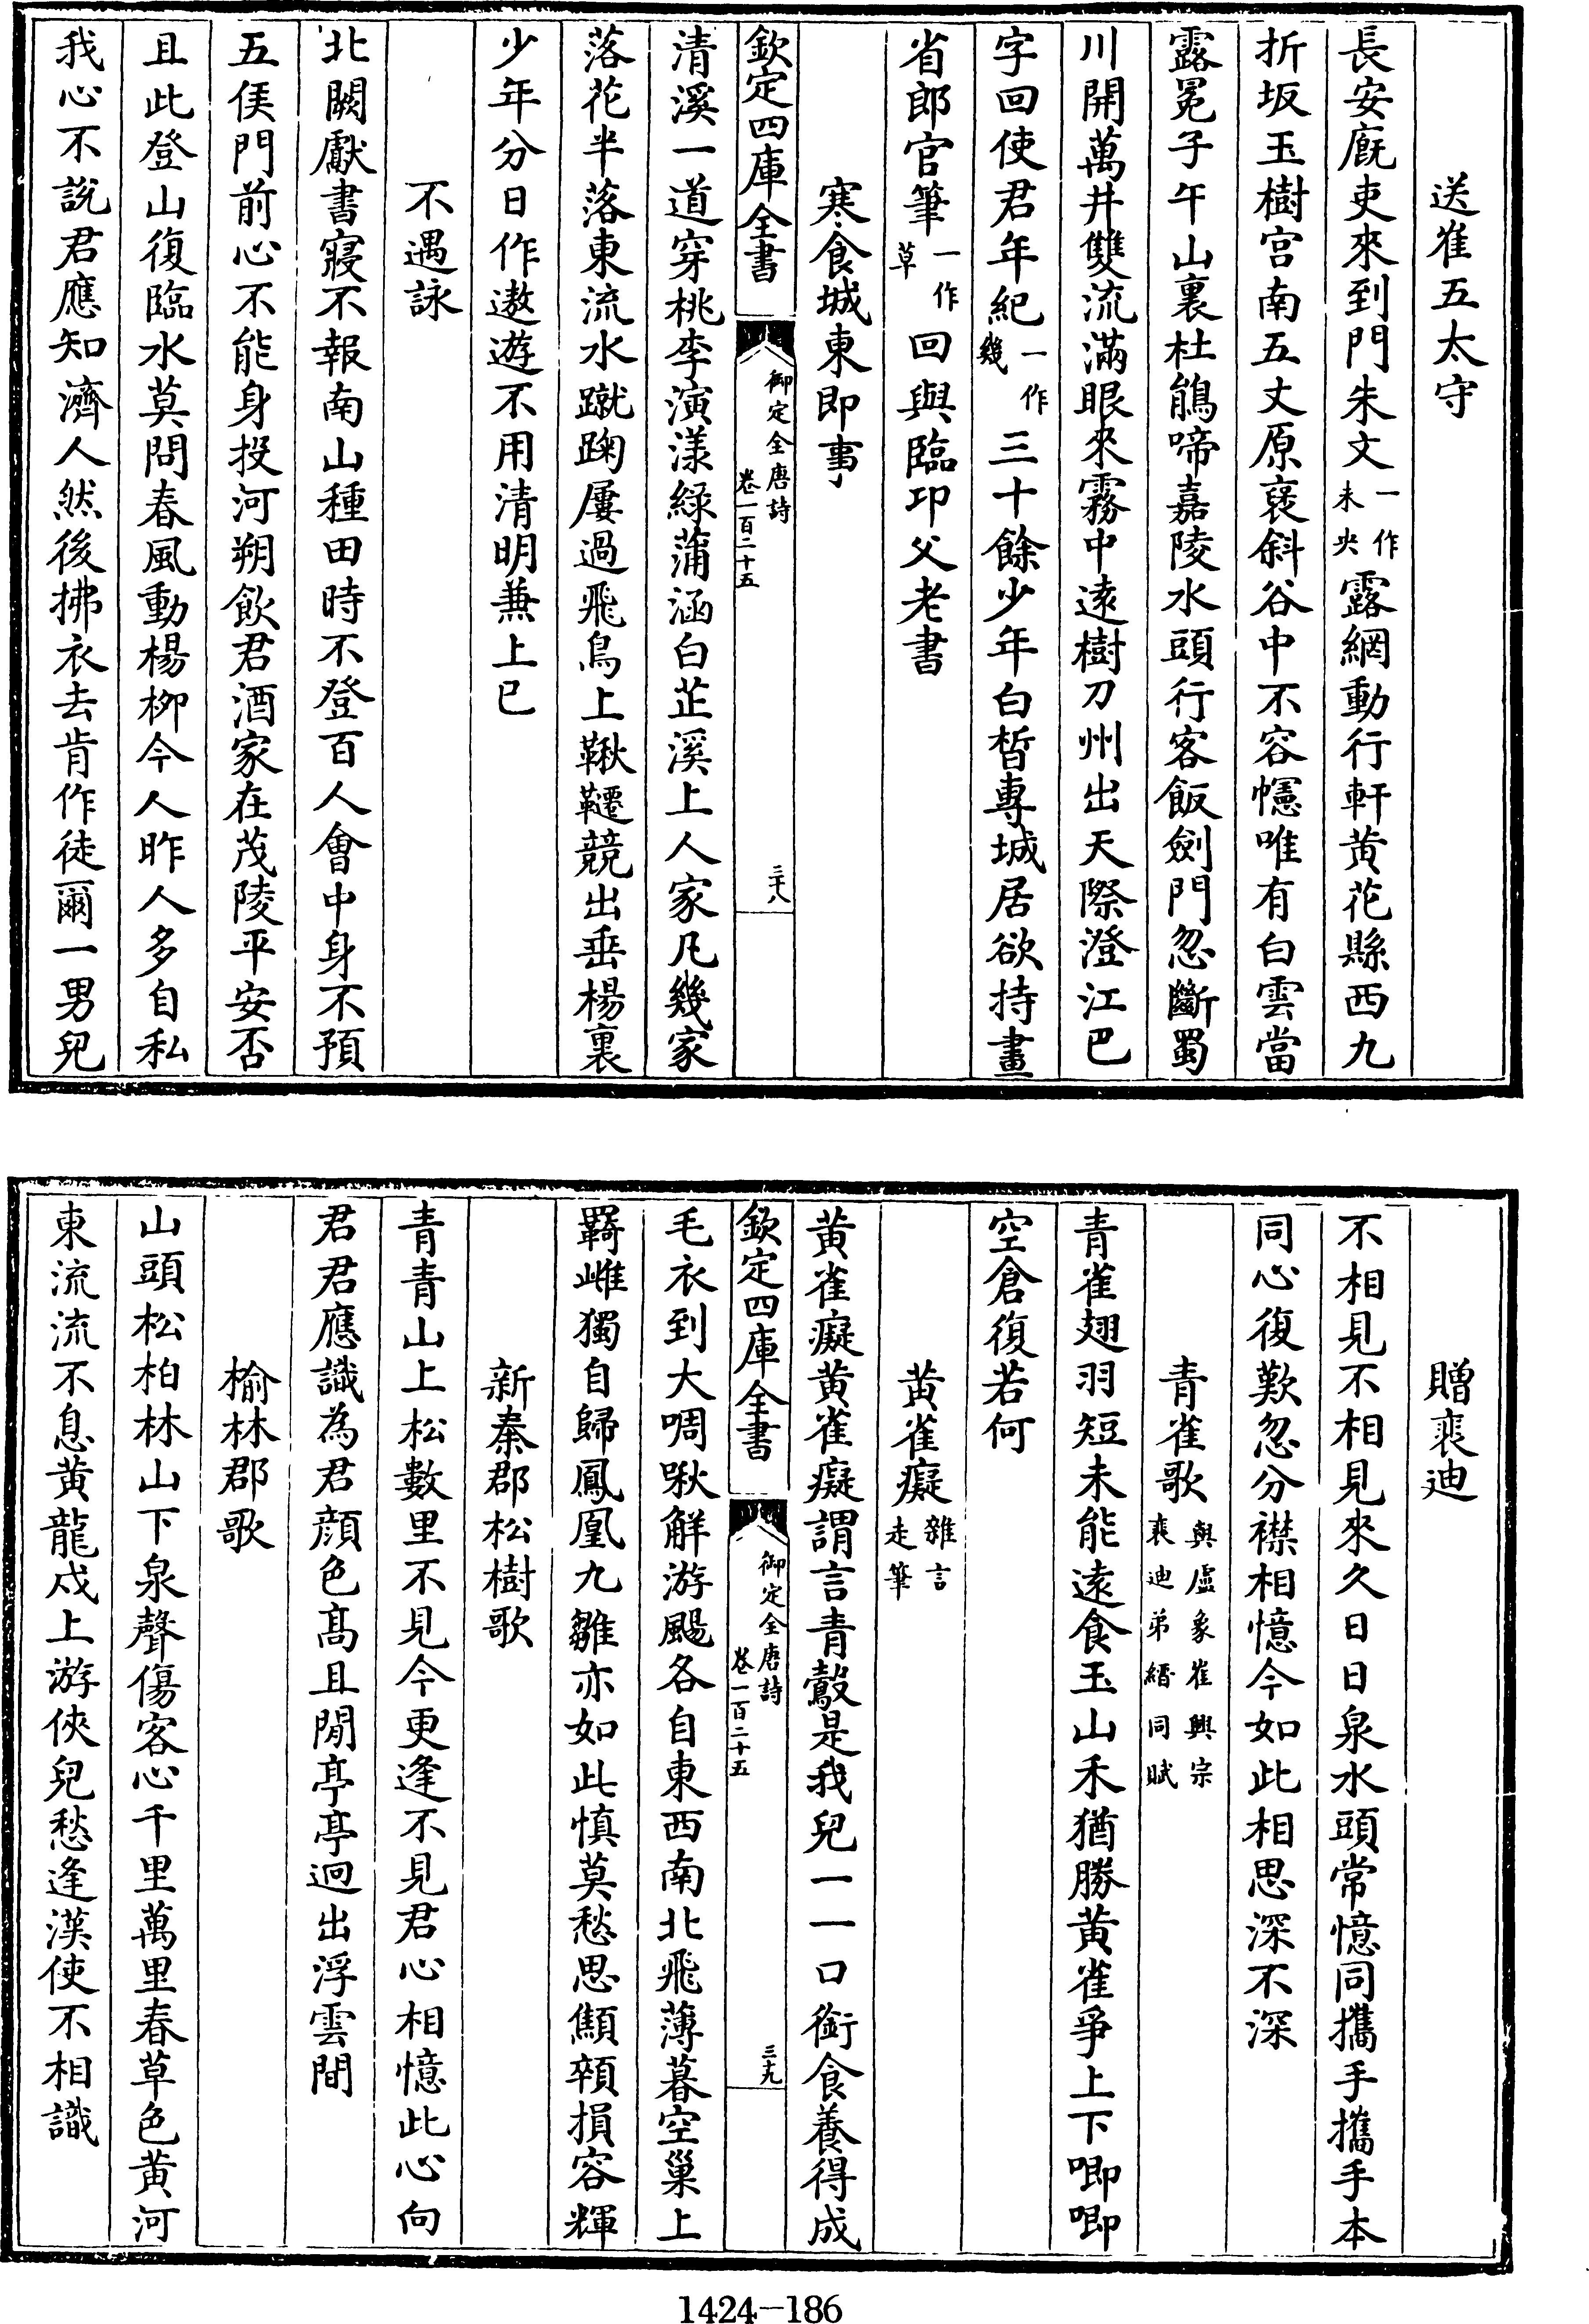 送崔五太守
長安廐吏來到門朱文一作未央露網動行軒黄花縣西九
折坂玉樹宫南五丈原褒斜谷中不容幰唯有白雲當
露冕子午山裏杜鵑啼嘉陵水頭行客飯劍門忽斷蜀
川開萬井雙流滿眼來霧中逺樹刀州出天際澄江巴
字回使君年紀一作幾三十餘少年白皙專城居欲持畫
省郎官筆一作草回與臨邛父老書
寒食城東即事
欽定四庫全書 御定全唐詩 卷一百二十五 三十八
清溪一道穿桃李演漾緑蒲涵白芷溪上人家凡幾家
落花半落東流水蹴踘屢過飛鳥上鞦韆競出垂楊裏
少年分日作遨遊不用清明兼上巳
不遇詠
北闕獻書寢不報南山種田時不登百人會中身不預
五侯門前心不能身投河朔飲君酒家在茂陵平安否
且此登山復臨水莫問春風動楊柳今人昨人多自私
我心不説君應知濟人然後拂衣去肯作徒爾一男兒
贈裴迪
不相見不相見來久日日泉水頭常憶同攜手攜手本
同心復歎忽分襟相憶今如此相思深不深
青雀歌與盧象崔興宗裴迪弟縉同賦
青雀翅羽短未能逺食玉山禾猶勝黄雀爭上下唧唧
空倉復若何
黄雀癡雜言走筆
黄雀癡黄雀癡謂言青鷇是我兒一一口銜食養得成
欽定四庫全書 御定全唐詩 卷一百二十五 三十九
毛衣到大啁啾解游颺各自東西南北飛薄暮空巢上
羇雌獨自歸鳳凰九雛亦如此慎莫愁思顦顇損容輝
新秦郡松樹歌
青青山上松數里不見今更逢不見君心相憶此心向
君君應識為君顔色髙且閒亭亭迥出浮雲間
榆林郡歌
山頭松柏林山下泉聲傷客心千里萬里春草色黄河
東流流不息黄龍戍上游俠兒愁逢漢使不相識
1424—186